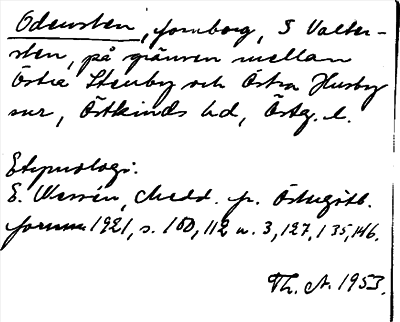 Odensten, fornborg, S Valter-
sten, på gränsen mellan
Östra Stenby och Östra Husby
snr, Östkinds hd, Östg. l.
Etymologi:
E. Wessén, Medd. fr. Östergötl.
fornm 1921, s. 100, 112 n. 3, 127, 135, 146.
Th. A. 1953.